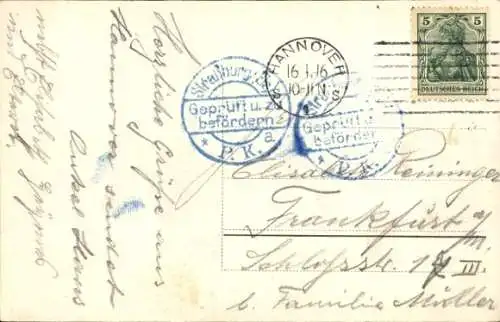 Herzliche Grüße aus
Hannover sendet
Onkel Hans
Straßburg
Geprüft u. zu
befördern
* P. K. a
HANNOVER
16.1.16
10-11 N
Geprüft u. zu
befördern
* P. K.
5 5
DEUTSCHES REICH
Elisabeth Reininger
Frankfurt a/M
Schloßstr. 17 III.
b. Familie Müller